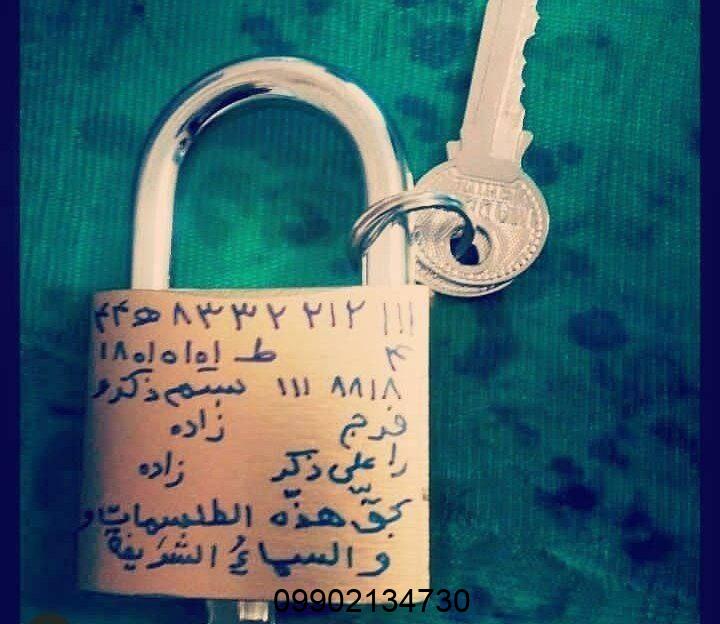 ۱۱۱ ۲۱۲ ۸۳۳۲ ھ ۴۴
۴ ط ۱۸۰ا۵ا۵ا
۸۸۱۸ ۱۱۱ بستم ذکر و
فرج زاده
را علی ذکر زاده
بحقّ هذه الطلسمات و
و السماءُ الشریفة
09902134730